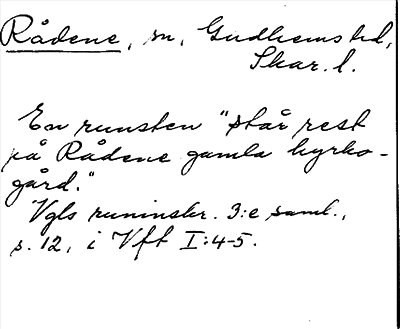 Rådene, sn, Gudhems hd,
Skar. l.
En runsten "står rest
på Rådene gamla kyrko-
gård."
Vgls runinskr. 3:e saml.,
s. 12, i Vft I:4-5.